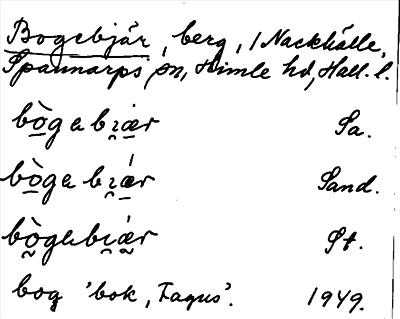 Bogebjär, berg, i Nackhälle,
Spannarps sn, Himle hd, Hall. l.
bò̠gabi̯ǽ̠r Sa.
bò̠gabi̯ǽ̠r Sand.
bò̰gabi̯ǽ̰r St.
bog 'bok, Fagus'. 1949.